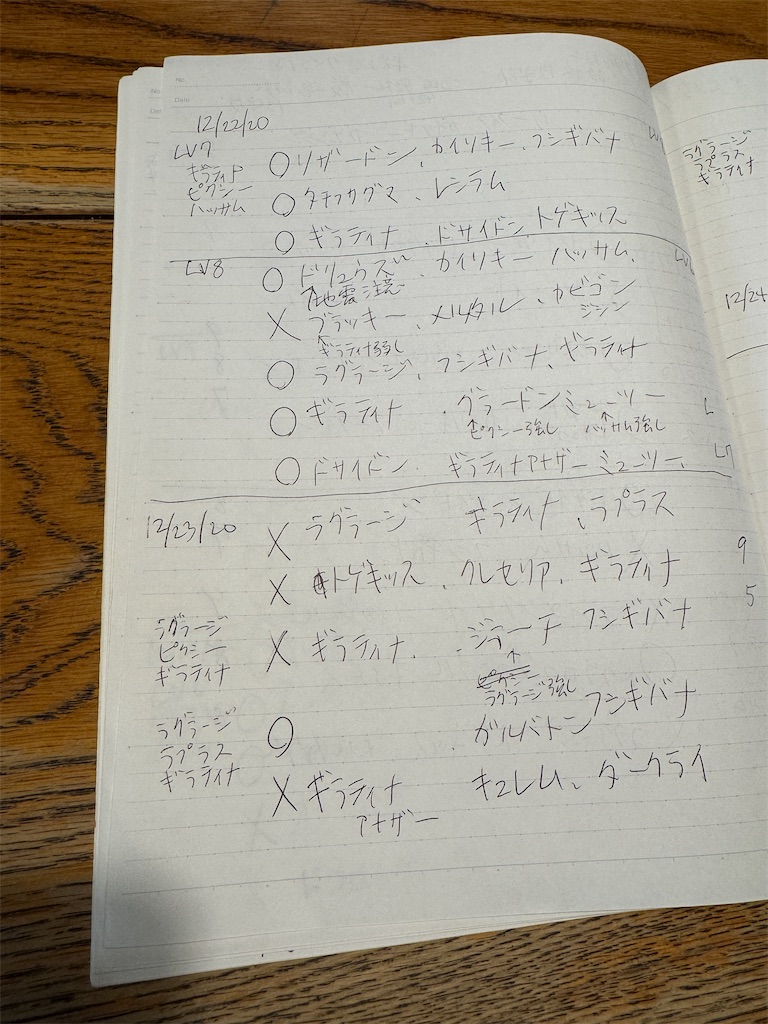 No.
Date
12/22/20
LV7
ギラティナ
ピクシー
ハッサム
○リザードン、カイリキー、フシギバナ
○タチフサグマ、レシラム
○ギラティナ、ドサイドン トゲキッス
LV8
○ドリュウズ、カイリキー ハッサム、
↑地震注意
×ブラッキー、メルメタル、カビゴン
↑ギラティナ弱し
ジシン
○ラグラージ、フシギバナ、ギラティナ
○ギラティナ、グラードンミューツー
↑ピクシー強し ↑ハッサム強し
○ドサイドン ギラティナアナザー ミューツー、
12/23/20
×ラグラージ ギラティナ、ラプラス
×トゲキッス、クレセリア、ギラティナ
ラグラージ
ピクシー
ギラティナ
×ギラティナ、ジラーチ フシギバナ
↑
ラグラージ強し
ラグラージ
ラプラス
ギラティナ
○ 、ガルバトン フシギバナ
×ギラティナ キュレム、ダークライ
アナザー
ラグラージ
ラプラス
ギラティナ
12/24
L7
9
5